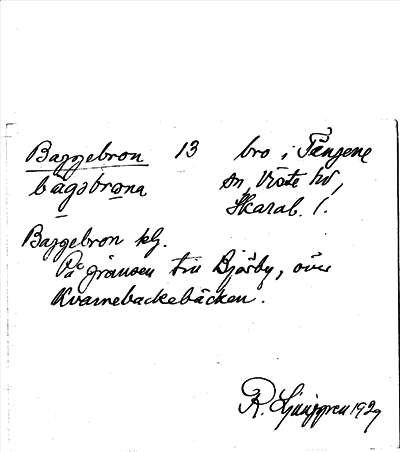 Baggebron 13 bro i Tängene
bagobrona sn, Viste hd,
Skarab. l.
Baggebron kg.
På gränsen till Bjärby, över
Kvarnebackebäcken.
R. Ljunggren 1927